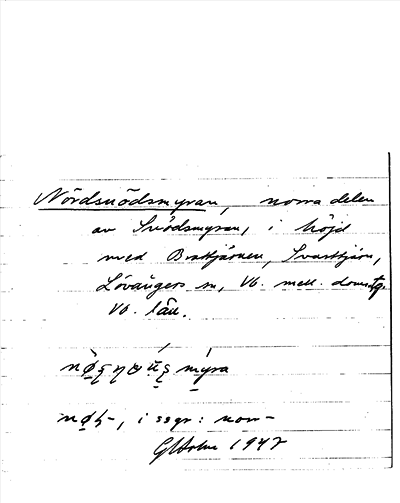 Nördsnödsmyran, norra delen
av Snödsmyran, i höjd
med Brattjärnen, Svarttjärn,
Lövångers sn, Vb. mell. domstg.
Vb. län.
myra
i ssgr: norr-
GHolm 1947